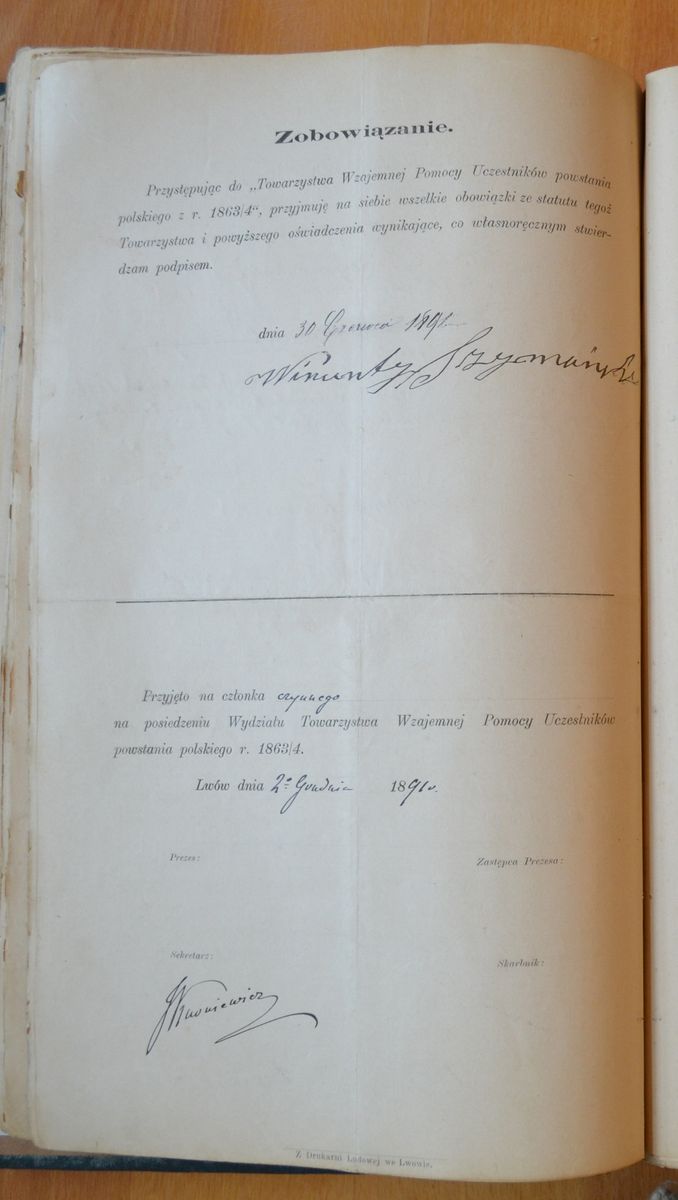 Zobowiązanie.
Przystępując do „Towarzystwa Wzajemnej Pomocy Uczestników powstania
polskiego z r. 1863/4“, przyjmuję na siebie wszelkie obowiązki ze statutu tegoż
Towarzystwa i powyższego oświadczenia wynikające, co własnoręcznym stwier-
dzam podpisem.
dnia 30 Czerwca 1891
Wincenty Szymański
Przyjęto na członka czynnego
na posiedzeniu Wydziału Towarzystwa Wzajemnej Pomocy Uczestników
powstania polskiego r. 1863/4.
Lwów dnia 2º Grudnia 1891.
Prezes: Zastępca Prezesa:
Sekretarz: Skarbnik:
Z Drukarni Ludowej we Lwowie.